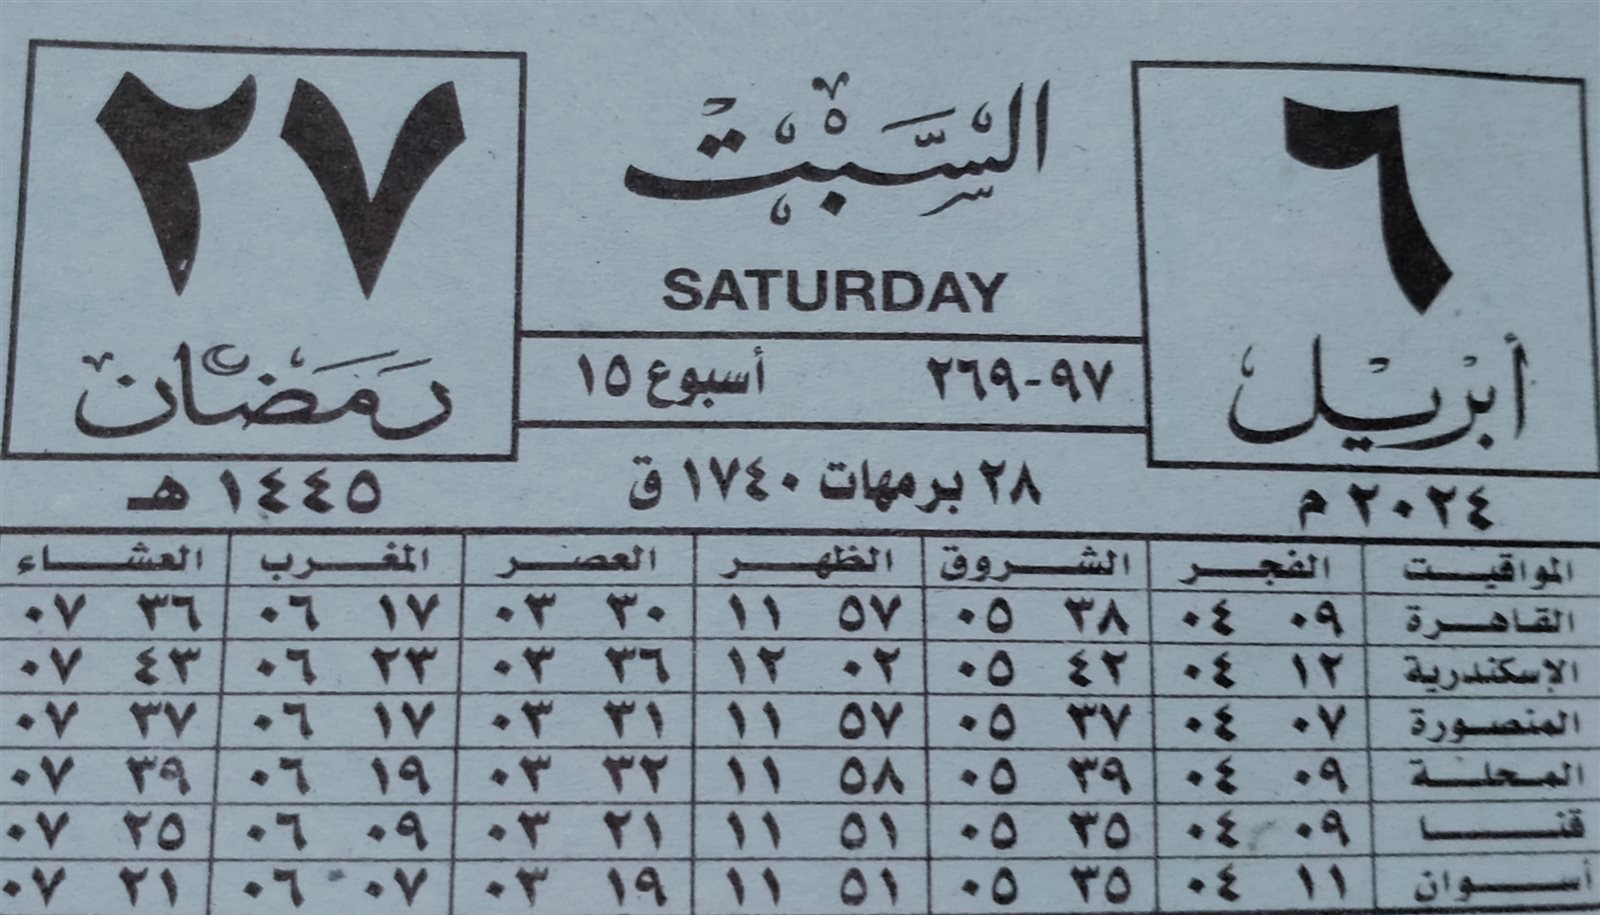 ٦
أبريل
٢٠٢٤ م
السَّبْت
SATURDAY
٩٧-٢٦٩ أسبوع ١٥
٢٨ برمهات ١٧٤٠ ق
٢٧
رمضان
١٤٤٥ هـ
المواقيت الفجر الشروق الظهر العصر المغرب العشاء
القاهرة ٠٩ ٠٤ ٣٨ ٠٥ ٥٧ ١١ ٣٠ ٠٣ ١٧ ٠٦ ٣٦ ٠٧
الإسكندرية ١٢ ٠٤ ٤٢ ٠٥ ٠٢ ١٢ ٣٦ ٠٣ ٢٣ ٠٦ ٤٣ ٠٧
المنصورة ٠٧ ٠٤ ٣٧ ٠٥ ٥٧ ١١ ٣١ ٠٣ ١٧ ٠٦ ٣٧ ٠٧
المحلة ٠٩ ٠٤ ٣٩ ٠٥ ٥٨ ١١ ٣٢ ٠٣ ١٩ ٠٦ ٣٩ ٠٧
قنا ٠٩ ٠٤ ٣٥ ٠٥ ٥١ ١١ ٢١ ٠٣ ٠٩ ٠٦ ٢٥ ٠٧
أسوان ١١ ٠٤ ٣٥ ٠٥ ٥١ ١١ ١٩ ٠٣ ٠٧ ٠٦ ٢١ ٠٧